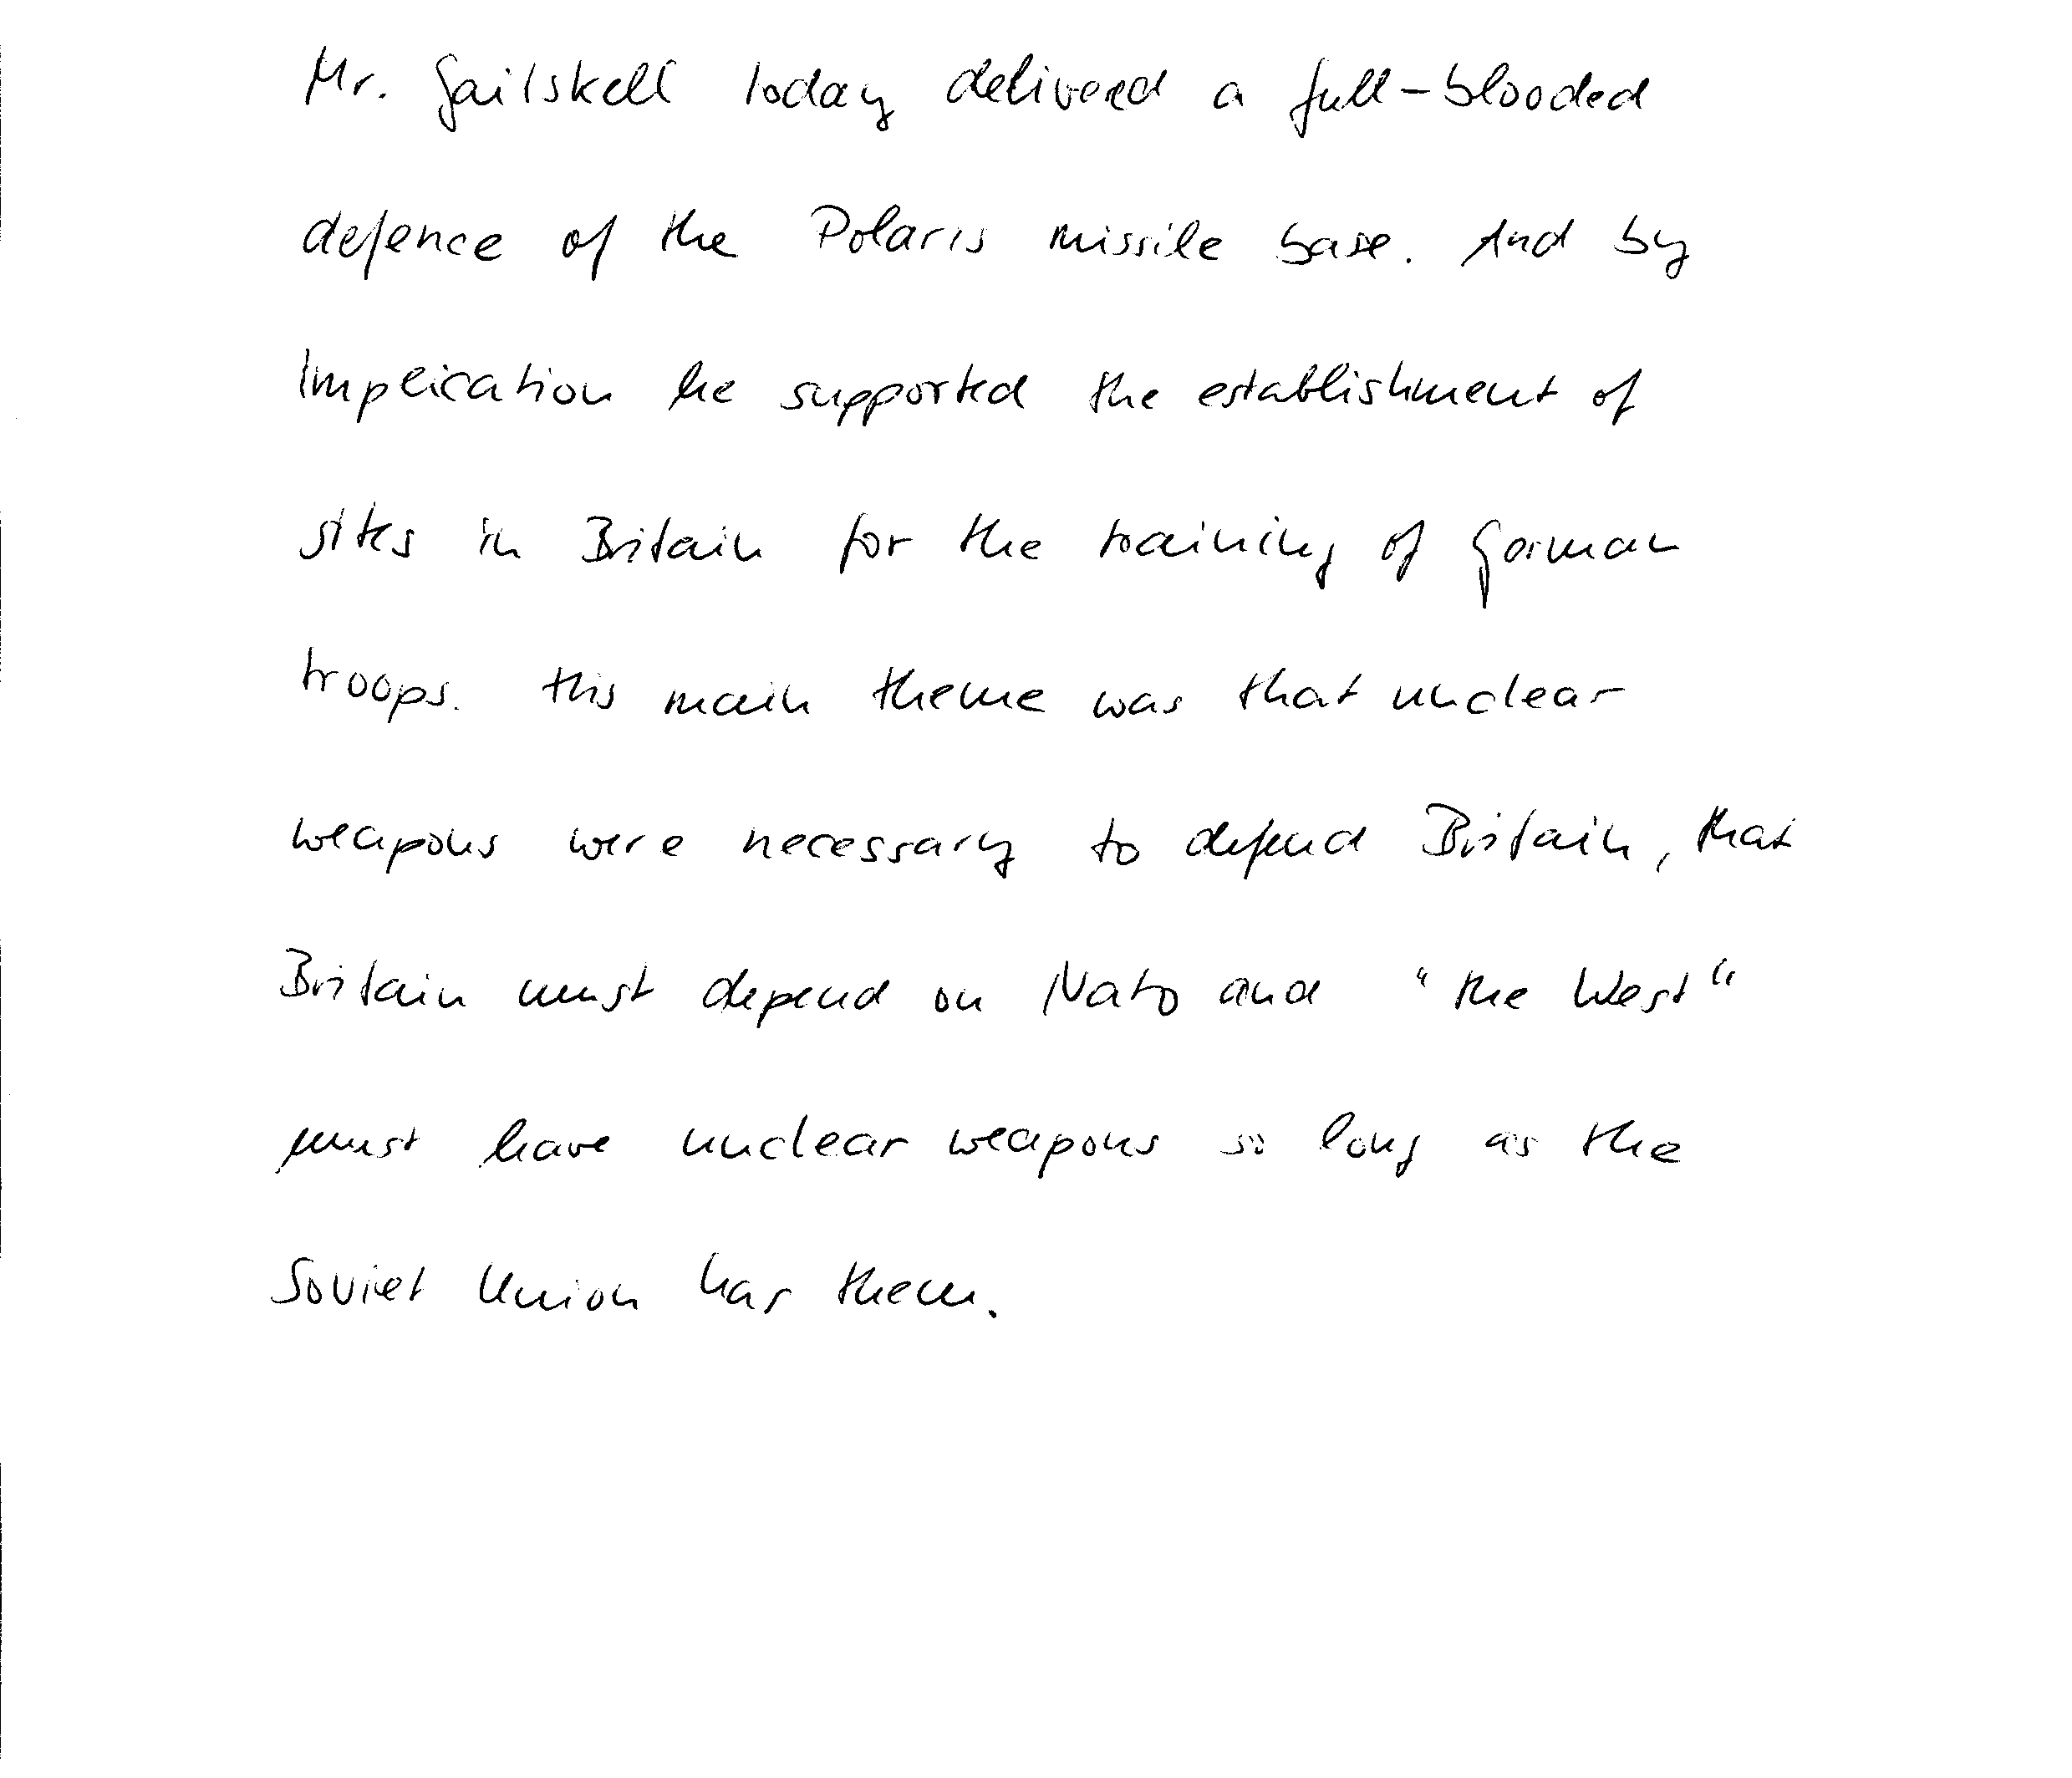 Mr. Gaitskell today delivered a full-blooded
defence of the Polaris missile base. And by
implication he supported the establishment of
sites in Britain for the training of German
troops. This main theme was that nuclear
weapons were necessary to defend Britain, that
Britain must depend on Nato and "the West"
must have nuclear weapons so long as the
Soviet Union has them.